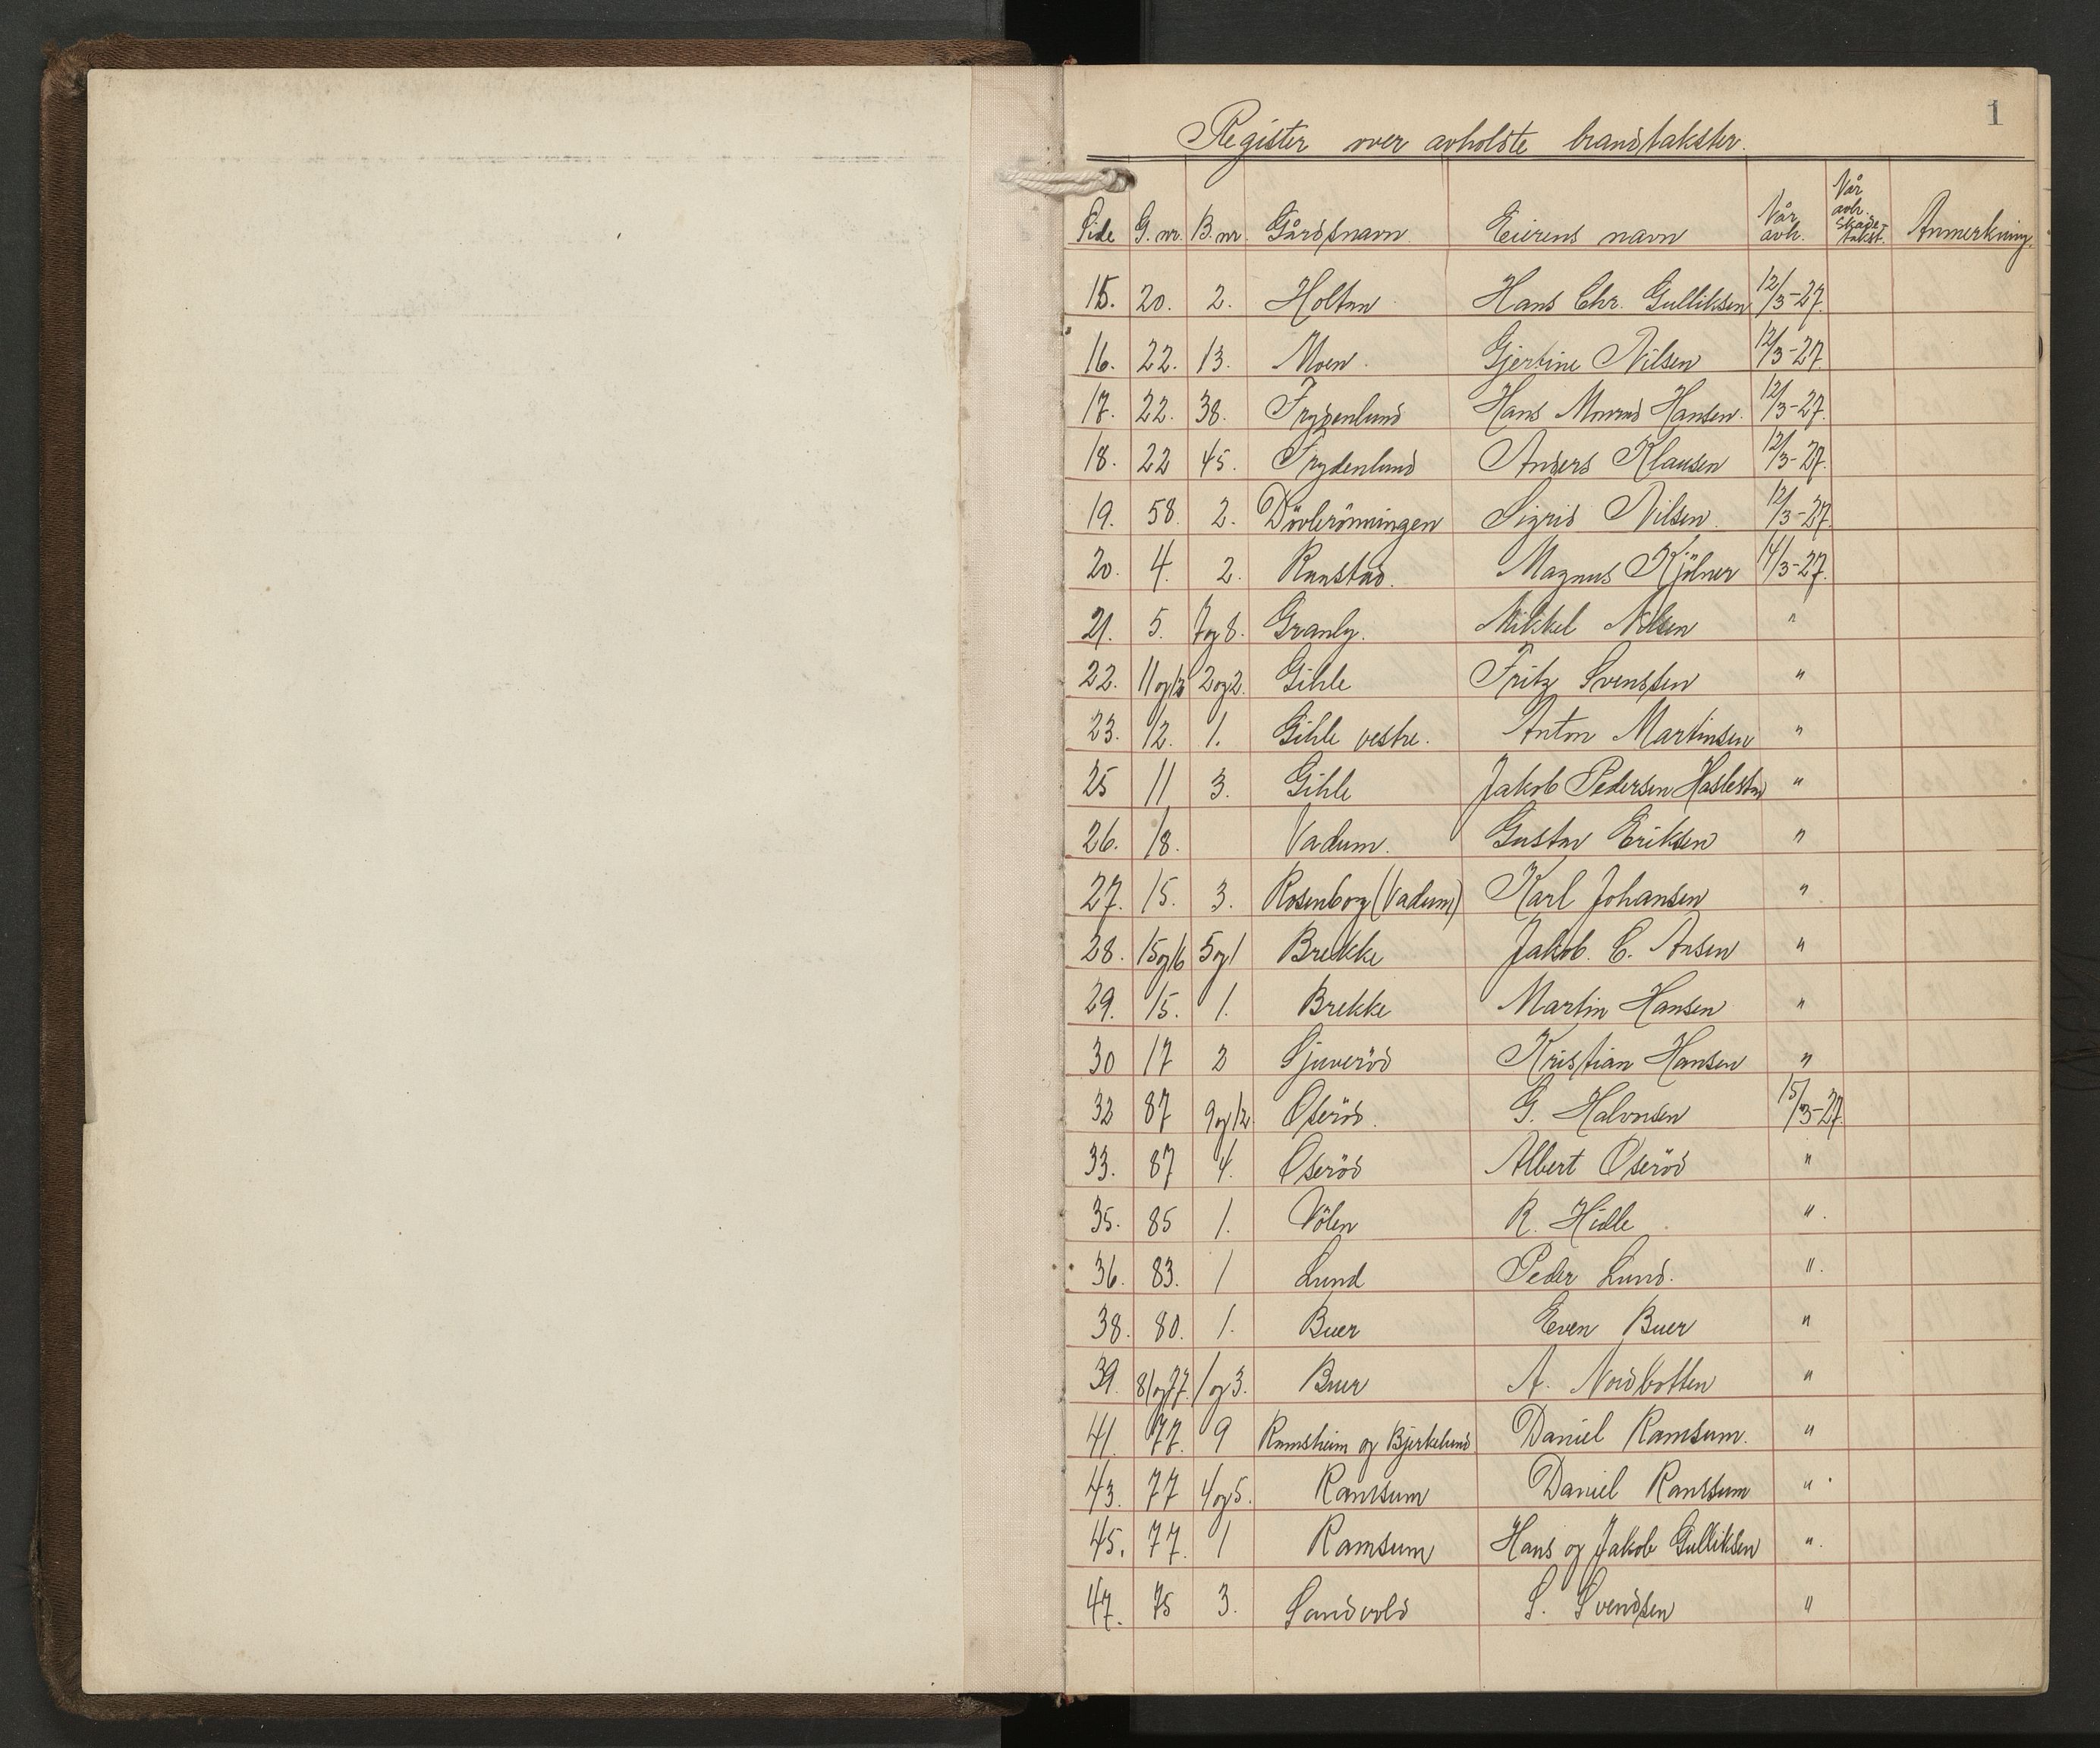 1
Register over avholdte brandtakster.
Side G. nr. B. nr. Gårdsnavn Eierens navn Når avh. Når avh. skade-takst. Anmerkning.
15. 20. 2. Holtan Hans Chr. Gulliksen 12/3-27.
16. 22. 13. Moen. Gjertine Nilsen 12/3-27.
17. 22. 38. Frydenlund Hans Monrad Hansen. 12/3-27.
18. 22 45. Frydenlund Anders Klausen 12/3-27.
19. 58. 2. Dövlerönningen Sigrid Nilsen. 12/3-27.
20. 4. 2. Ranstad. Magnus Kjölner 14/3-27.
21. 5. 7og8. Granly. Mikkel Nilsen "
22. 11og13 2og2. Gihle Fritz Svensen "
23. 12. 1. Gihle vestre. Anton Martinsen "
25 11 3. Gihle Jakob Pedersen Haslestad "
26. 18. Vadum. Gustav Eriksen "
27. 15. 3. Rosenborg (Vadum) Karl Johansen "
28. 15og16 5og1 Brekke Jakob. C. Ansen "
29. 15. 1. Brekke Martin Hansen "
30 17 2 Sjuveröd Kristian Hansen "
32 87 9og12. Oseröd. G. Halvorsen 15/3-27.
33. 87 4. Oseröd Albert Oseröd "
35. 85 1. Völen R. Hidle "
36. 83. 1 Lund Peder Lund. "
38. 80. 1. Buer Even Buer "
39. 81og77. 1og3. Buer A. Nordbotten "
41. 77. 9 Ramsheim og Bjerkelund Daniel Ramsum. "
43. 77 4og5. Ramsum Daniel Ramsum "
45. 77. 1 Ramsum Hans og Jakob Gulliksen "
47. 75 3. Sandvold S. Svendsen "